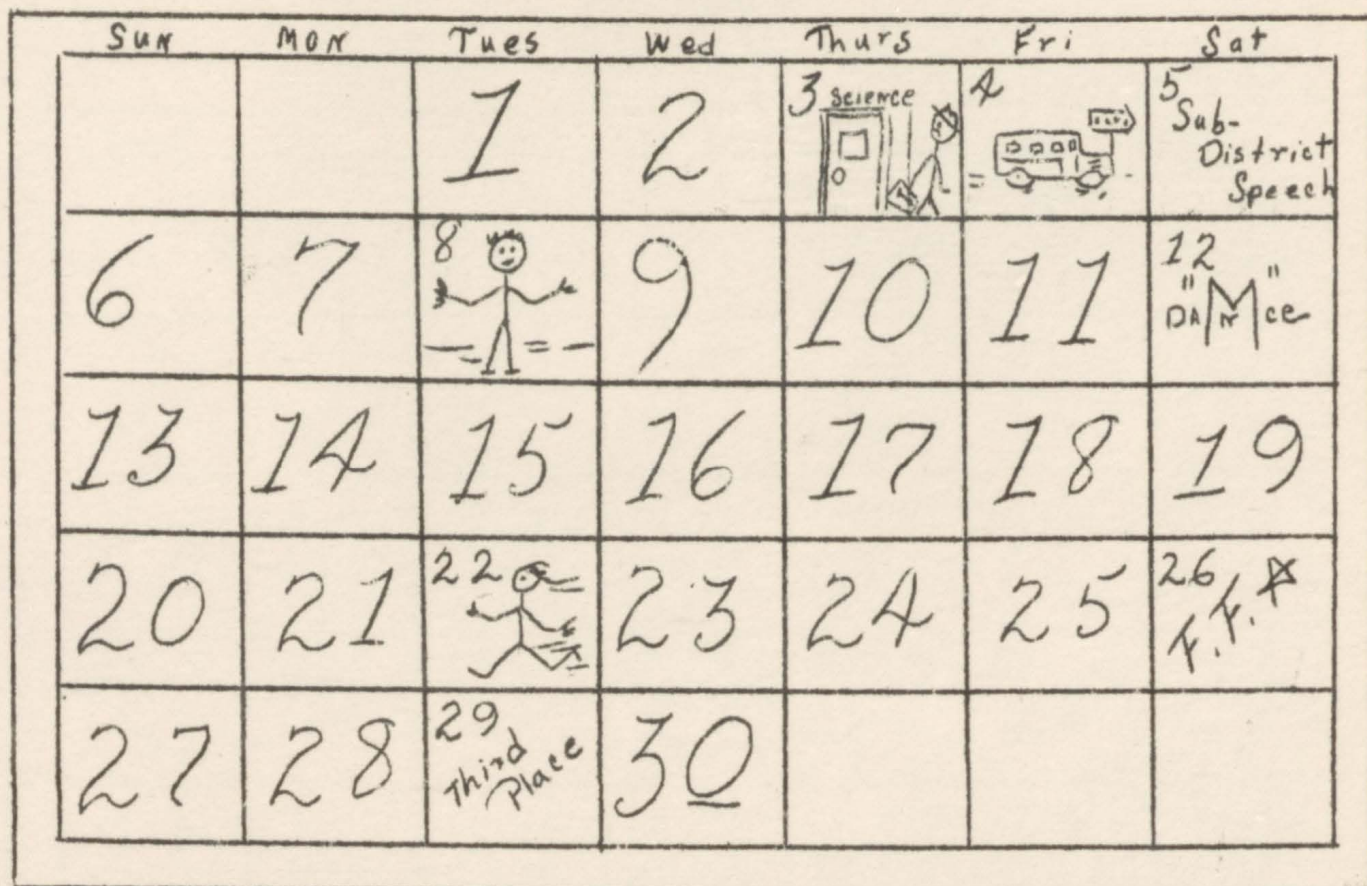 Sun Mon Tues Wed Thurs Fri Sat
1 2 3 Science 4 5 Sub-
District
Speech
6 7 8 9 10 11 12
"DANCE"
M
13 14 15 16 17 18 19
20 21 22 23 24 25 26
F.F.
27 28 29 Third
Place 30